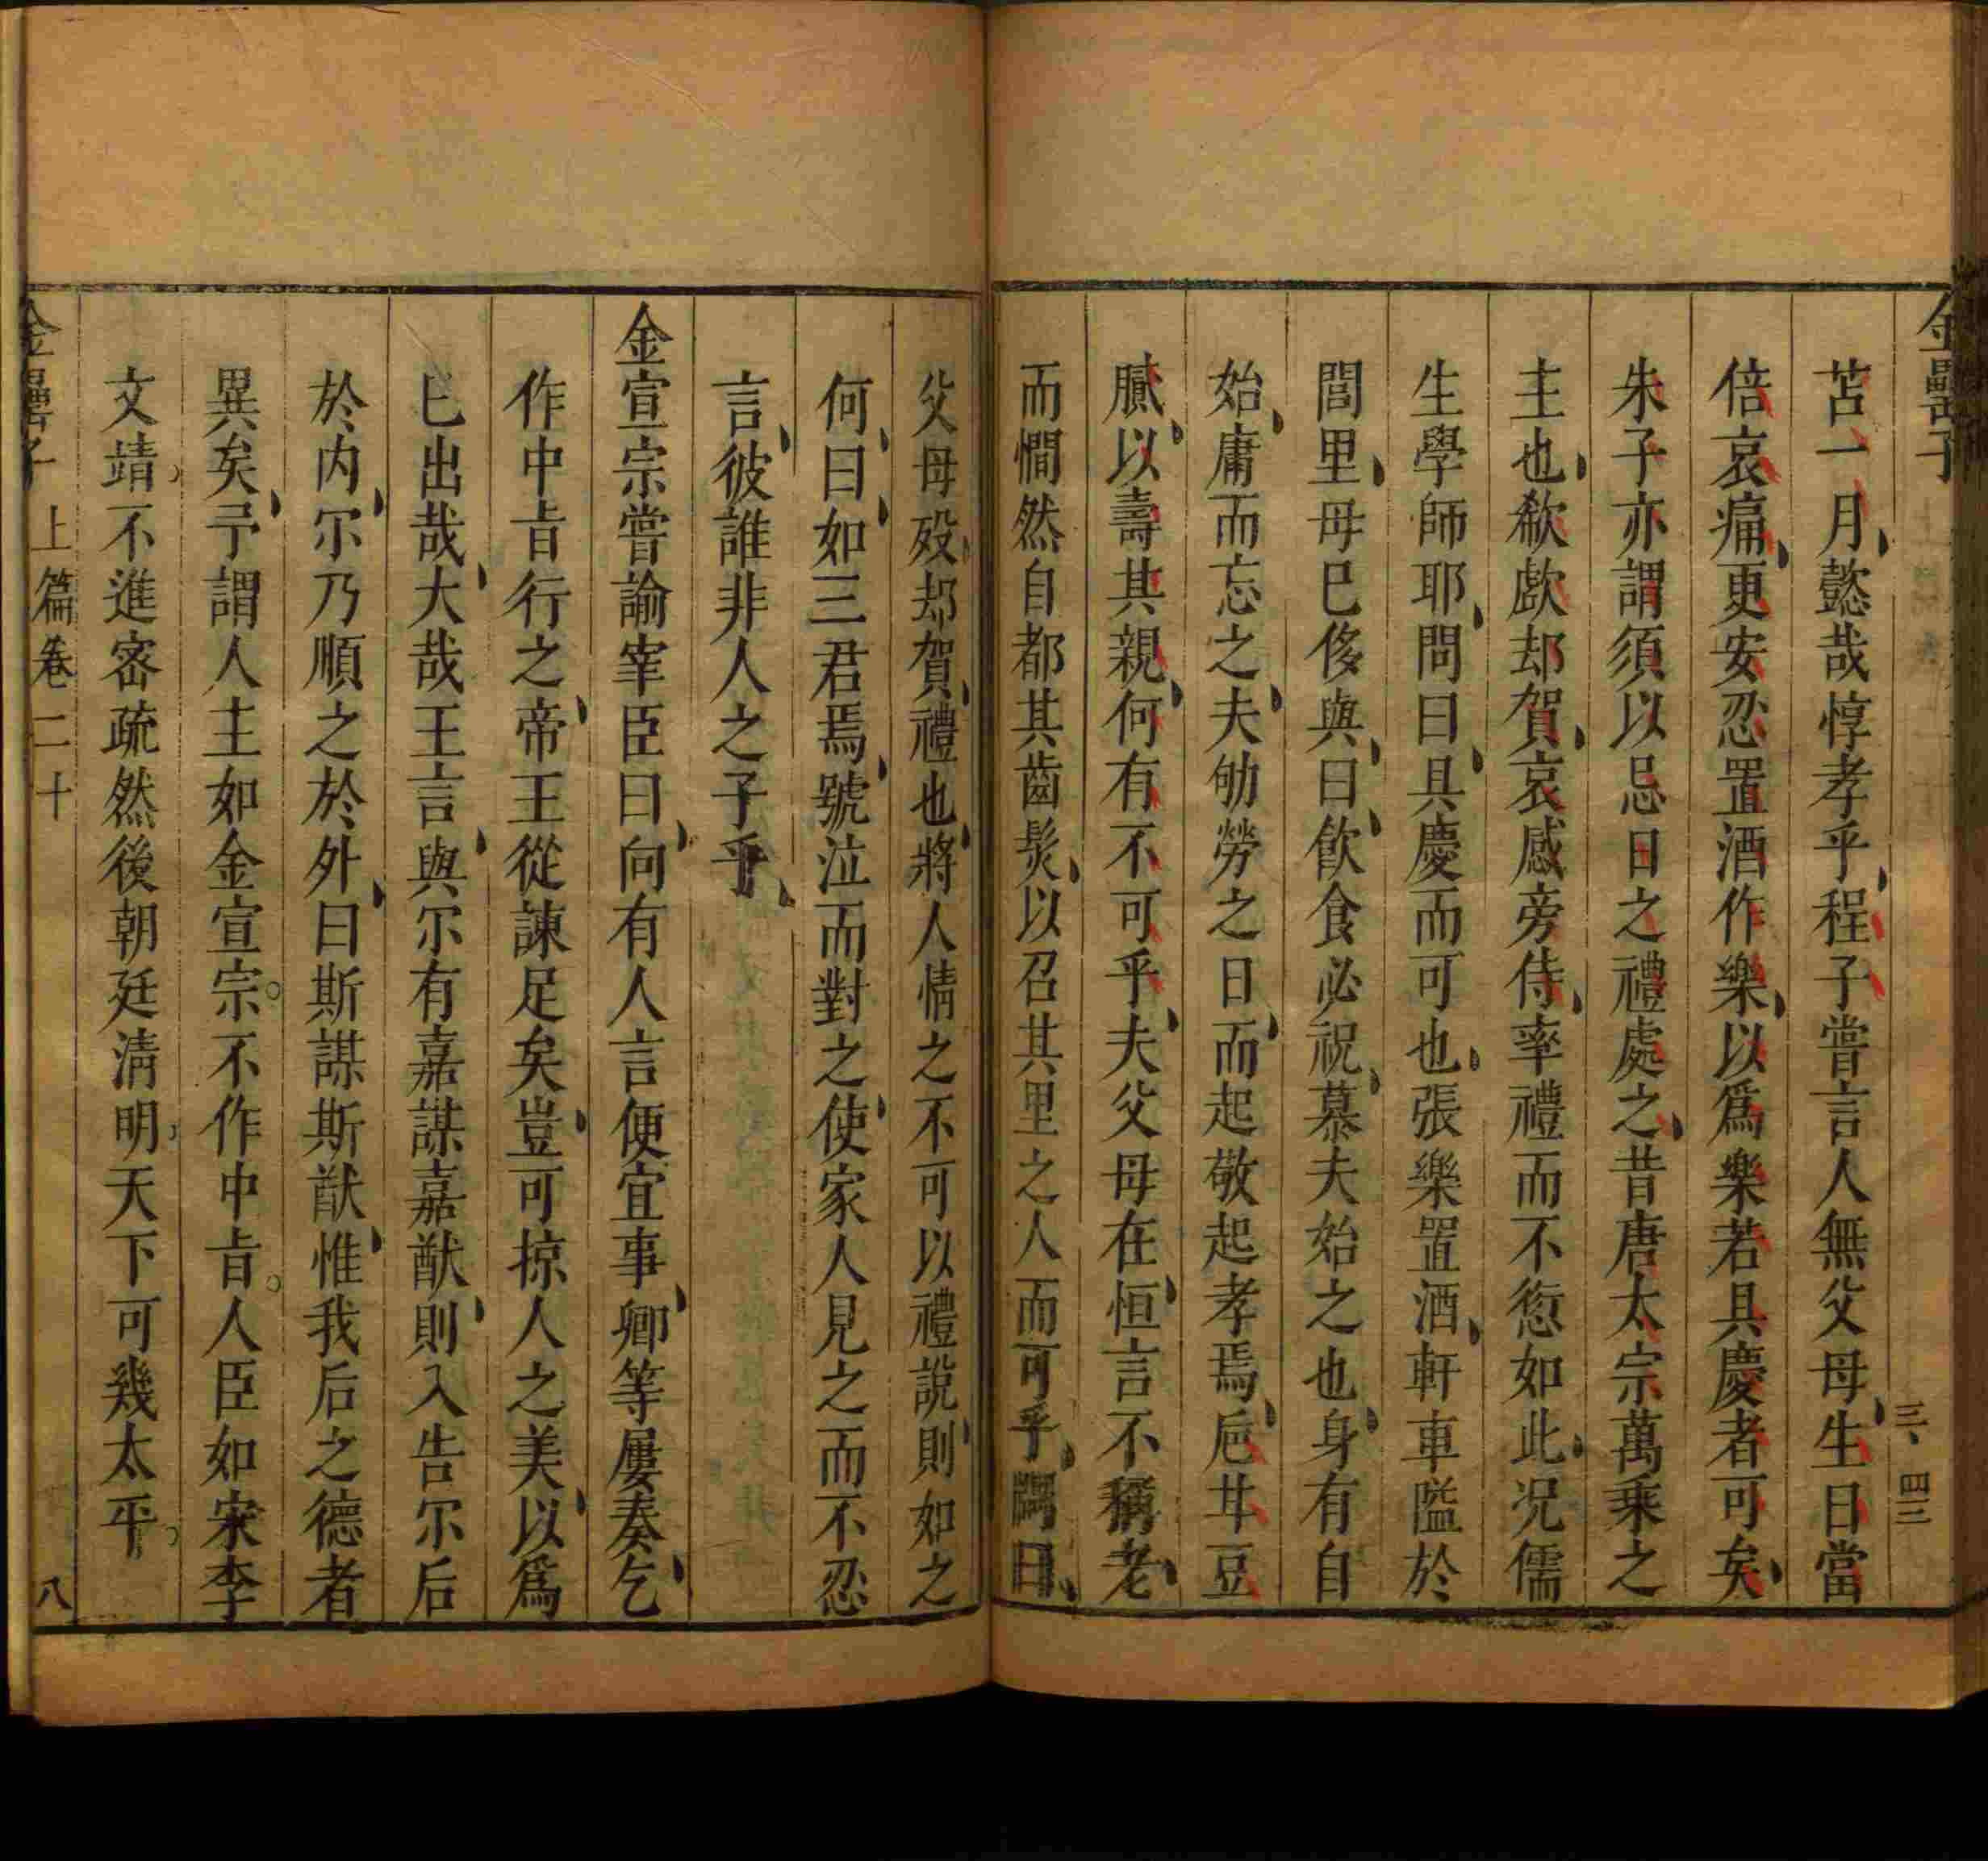 金罍子
三 四三
苫一月懿哉惇孝乎程子嘗言人無父母生日當
倍哀痛更安忍置酒作樂以爲樂若具慶者可矣
朱子亦謂須以忌日之禮處之昔唐太宗萬乘之
主也欷歔却賀哀感旁侍率禮而不愆如此况儒
生學師耶問曰具慶而可也張樂置酒軒車隘於
閭里毋巳侈與曰飲食必祝慕夫始之也身有自
始庸而忘之夫劬勞之日而起敬起孝焉巵甘豆
膩以壽其親何有不可乎夫父母在恒言不稱老
而憪然自都其齒髮以召其里之人而可乎 曰
父母殁却賀禮也將人情之不可以禮說則如之
何曰如三君焉號泣而對之使家人見之而不忍
言彼誰非人之子乎
金宣宗嘗諭宰臣曰向有人言便宜事卿等屢奏乞
作中㫖行之帝王從諫足矣豈可掠人之美以爲
巳出哉大哉王言與尔有嘉謀嘉猷則入告尔后
於内尔乃順之於外曰斯謀斯猷惟我后之德者
異矣予謂人主如金宣宗不作中㫖人臣如宋李
文靖不進宻疏然後朝廷淸明天下可幾太平
金罍子 上篇卷二十 八